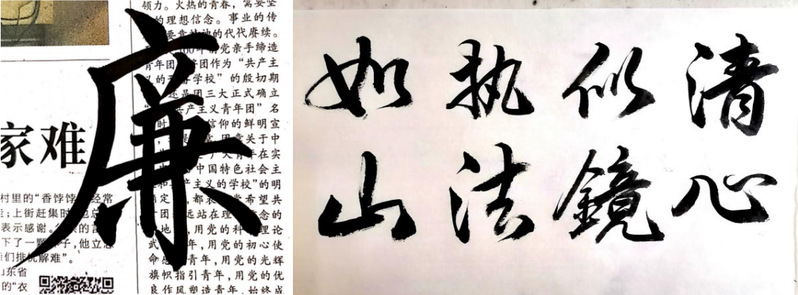 廉
家难
村里的“香饽饽
经常
；上街赶集时
表示感谢。
下了一
子，他立志
们排忧解难”。
东省
的“衣
领力。火热的青春，需要坚
的理想信念。事业的传
的代代赓续。
100年前党亲手缔造
青年团
团作为“共产主
义的
学校”的殷切期
还是团三大正式确立
产主义青年团”名
信仰的鲜明宣
团章关于中
青年在实
中国特色社会主
产主义的学校”的明
希望共
永远站在理
念的
用党的科
理论
年，用党的初心使
年，用党的光辉
旗帜指引青年，用党的优
良作风塑造青年，始终成
清心
似鏡
执法
如山